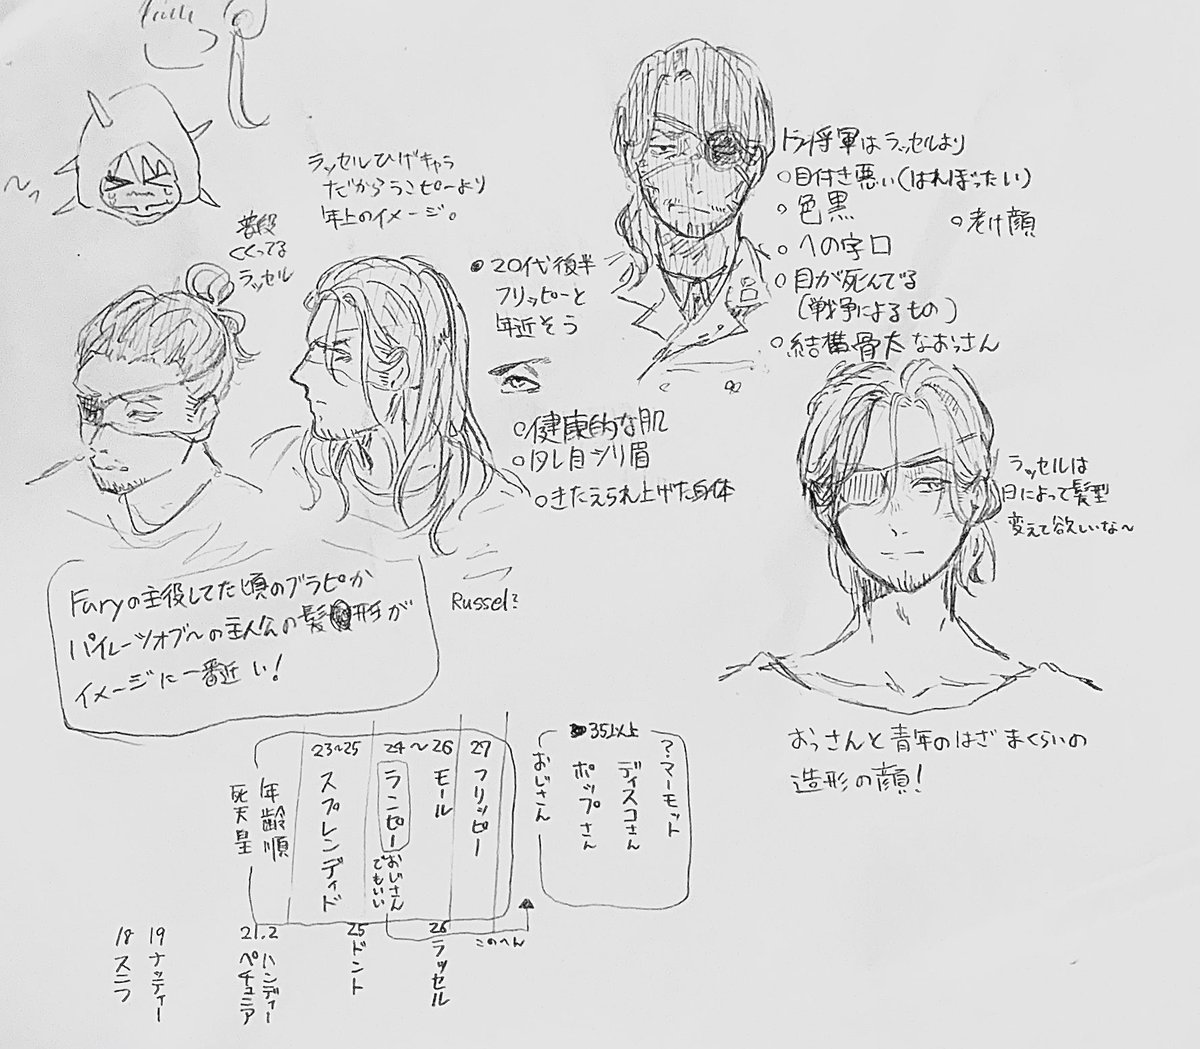 ラッセルひげキャラ
だからランピーより
年上のイメージ。
普段
くくってる
ラッセル
●20代後半
フリッピーと
年近そう
○健康的な肌
○タレ目ツリ眉
○きたえられ上げた身体
ドラ将軍はラッセルより
○目付き悪い(はれぼったい)
○色黒
○老け顔
○への字口
○目が死んでる
(戦争によるもの)
○結構骨太なおっさん
ラッセルは
日によって髪型
変えて欲しいな〜
Furyの主役してた頃のブラピか
パイレーツオブ〜の主人公の髪形が
イメージに一番近い!
Russel?
おっさんと青年のはざまくらいの
造形の顔!
年齢順
23〜25
スプレンディド
24〜26
ランピー
おじさん
でもいい
モール
27
フリッピー
おじさん
35以上
ポップさん
ディスコさん
?マーモット
18
スニフ
19
ナッティー
21.2
ハンディー
ペチュニア
25
ドント
26
ラッセル
このへん